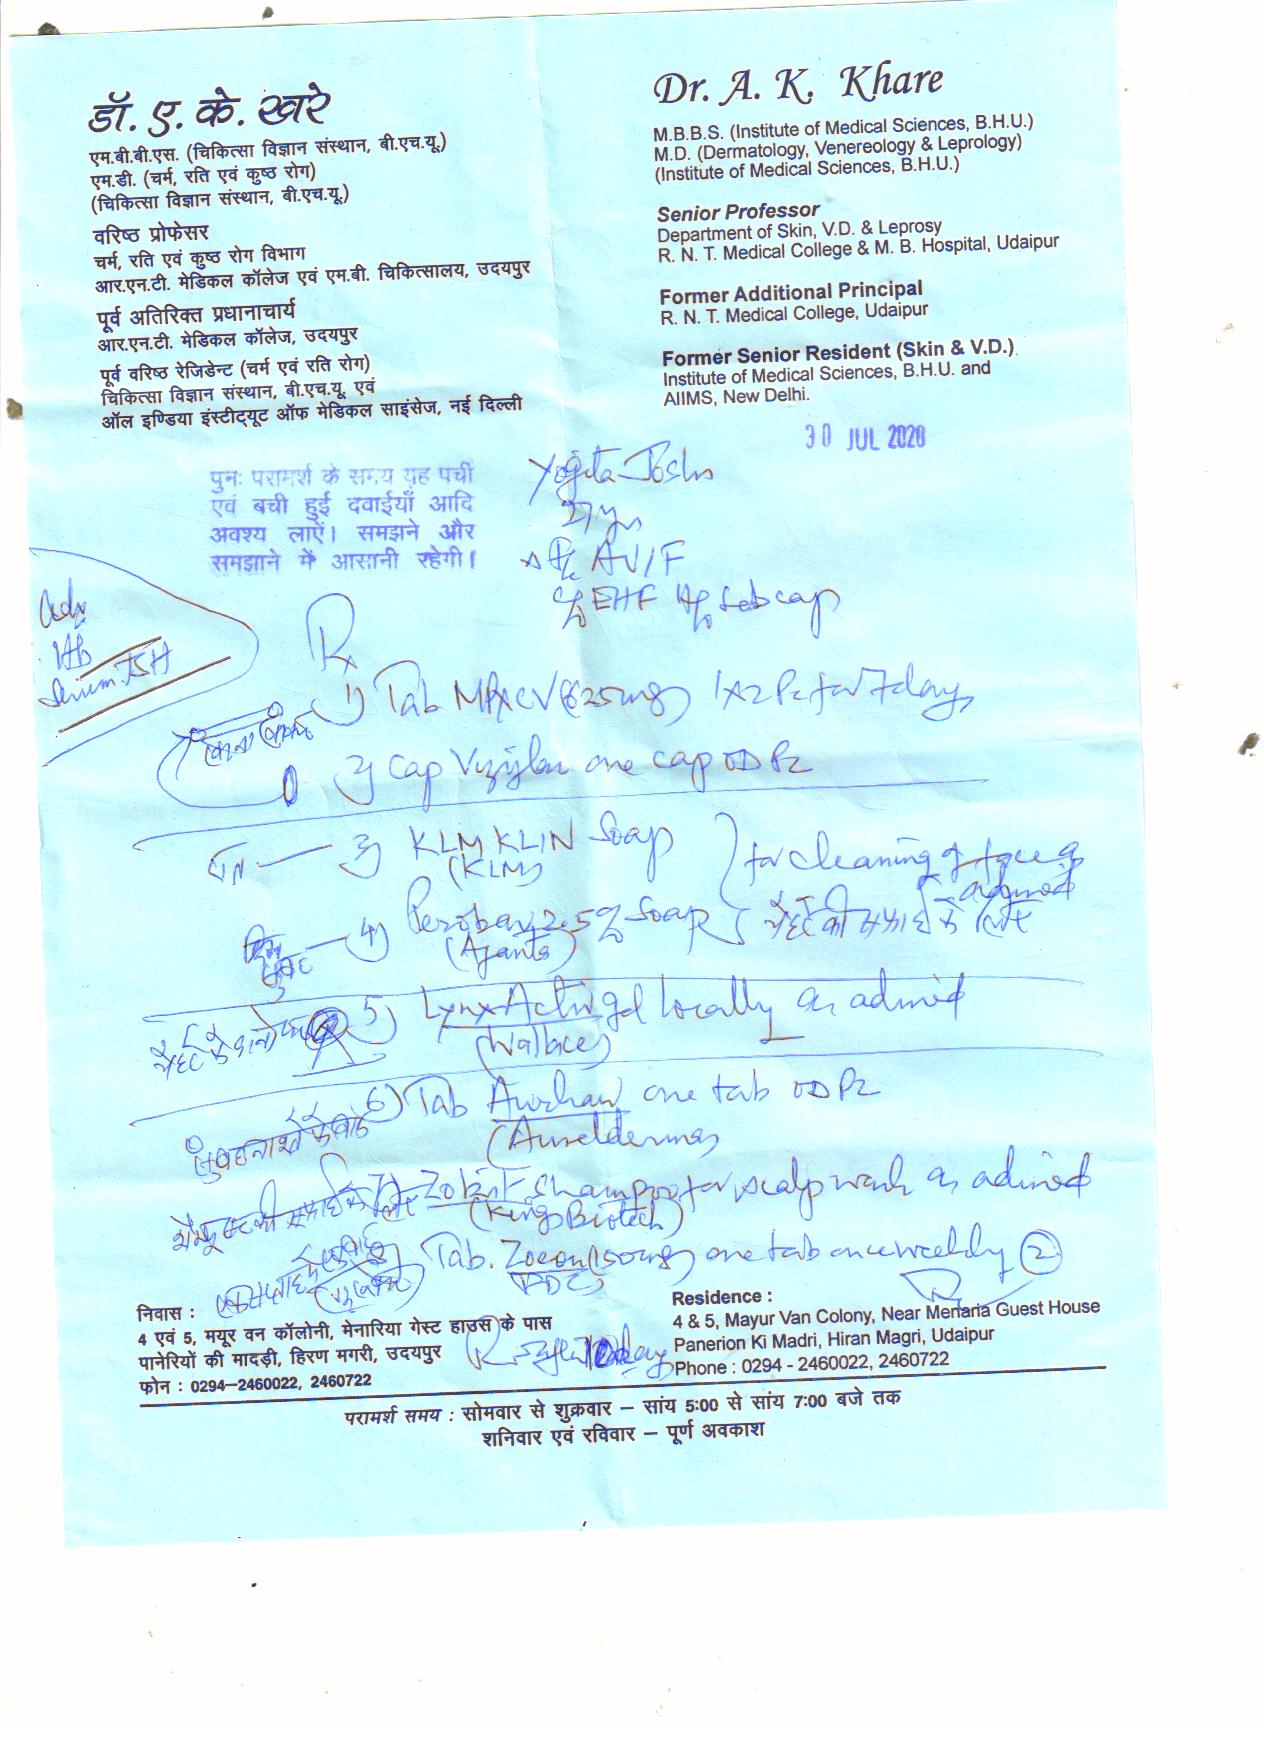 डॉ. ए. के. खरे
एम.बी.बी.एस. (चिकित्सा विज्ञान संस्थान, बी.एच.यू.)
एम.डी. (चर्म, रति एवं कुष्ठ रोग)
(चिकित्सा विज्ञान संस्थान, बी.एच.यू.)
वरिष्ठ प्रोफेसर
चर्म, रति एवं कुष्ठ रोग विभाग
आर.एन.टी. मेडिकल कॉलेज एवं एम.बी. चिकित्सालय, उदयपुर
पूर्व अतिरिक्त प्रधानाचार्य
आर.एन.टी. मेडिकल कॉलेज, उदयपुर
पूर्व वरिष्ठ रेजिडेन्ट (चर्म एवं रति रोग)
चिकित्सा विज्ञान संस्थान, बी.एच.यू. एवं
ऑल इण्डिया इंस्टीट्यूट ऑफ मेडिकल साइंसेज, नई दिल्ली
Dr. A. K. Khare
M.B.B.S. (Institute of Medical Sciences, B.H.U.)
M.D. (Dermatology, Venereology & Leprology)
(Institute of Medical Sciences, B.H.U.)
Senior Professor
Department of Skin, V.D. & Leprosy
R. N. T. Medical College & M. B. Hospital, Udaipur
Former Additional Principal
R. N. T. Medical College, Udaipur
Former Senior Resident (Skin & V.D.)
Institute of Medical Sciences, B.H.U. and
AIIMS, New Delhi.
30 JUL 2020
पुनः परामर्श के समय यह पर्ची
एवं बची हुई दवाईयाँ आदि
अवश्य लाऐं। समझने और
समझाने में आसानी रहेगी।
Yogita Joshi
AV/F
EHF
Adv
Hb
Serum TSH
Rx
1) Tab (625mg) 1x2 Pc for 7 days
2) Cap one cap OD Pc
3) KLM KLIN Soap
(KLM)
for cleaning of face as advised
4) Perobar 2.5% Soap
(Ajanta)
चेहरे की सफाई के लिए
5) Lynx Acti gel locally as advised
(Wallace)
6) Tab one tab OD Pc
सुबह नाश्ते के बाद
shampoo for scalp wash as advised
(Kings Biotech)
Tab. Zocon (150mg) one tab once weekly 2
(FDC)
निवास :
4 एवं 5, मयूर वन कॉलोनी, मेनारिया गेस्ट हाउस के पास
पानेरियों की मादड़ी, हिरण मगरी, उदयपुर
फोन : 0294–2460022, 2460722
Residence :
4 & 5, Mayur Van Colony, Near Menaria Guest House
Panerion Ki Madri, Hiran Magri, Udaipur
Phone : 0294 - 2460022, 2460722
परामर्श समय : सोमवार से शुक्रवार – सांय 5:00 से सांय 7:00 बजे तक
शनिवार एवं रविवार – पूर्ण अवकाश